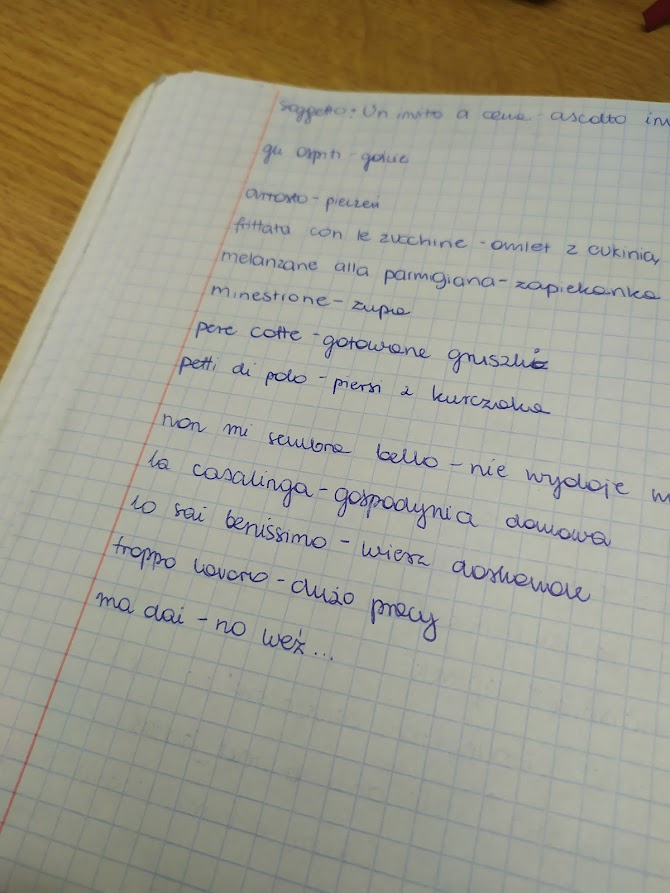 Soggetto: Un invito a cena - ascolto
gli ospiti - goście
arrosto - pieczeń
frittata con le zucchine - omlet z cukinią,
melanzane alla parmigiana - zapiekanka
minestrone - zupa
pere cotte - gotowane gruszki
petti di pollo - piersi z kurczaka
non mi sembra bello - nie wydaje
la casalinga - gospodynia domowa
lo sai benissimo - wiesz doskonale
troppo lavoro - dużo pracy
ma dai - no weź...